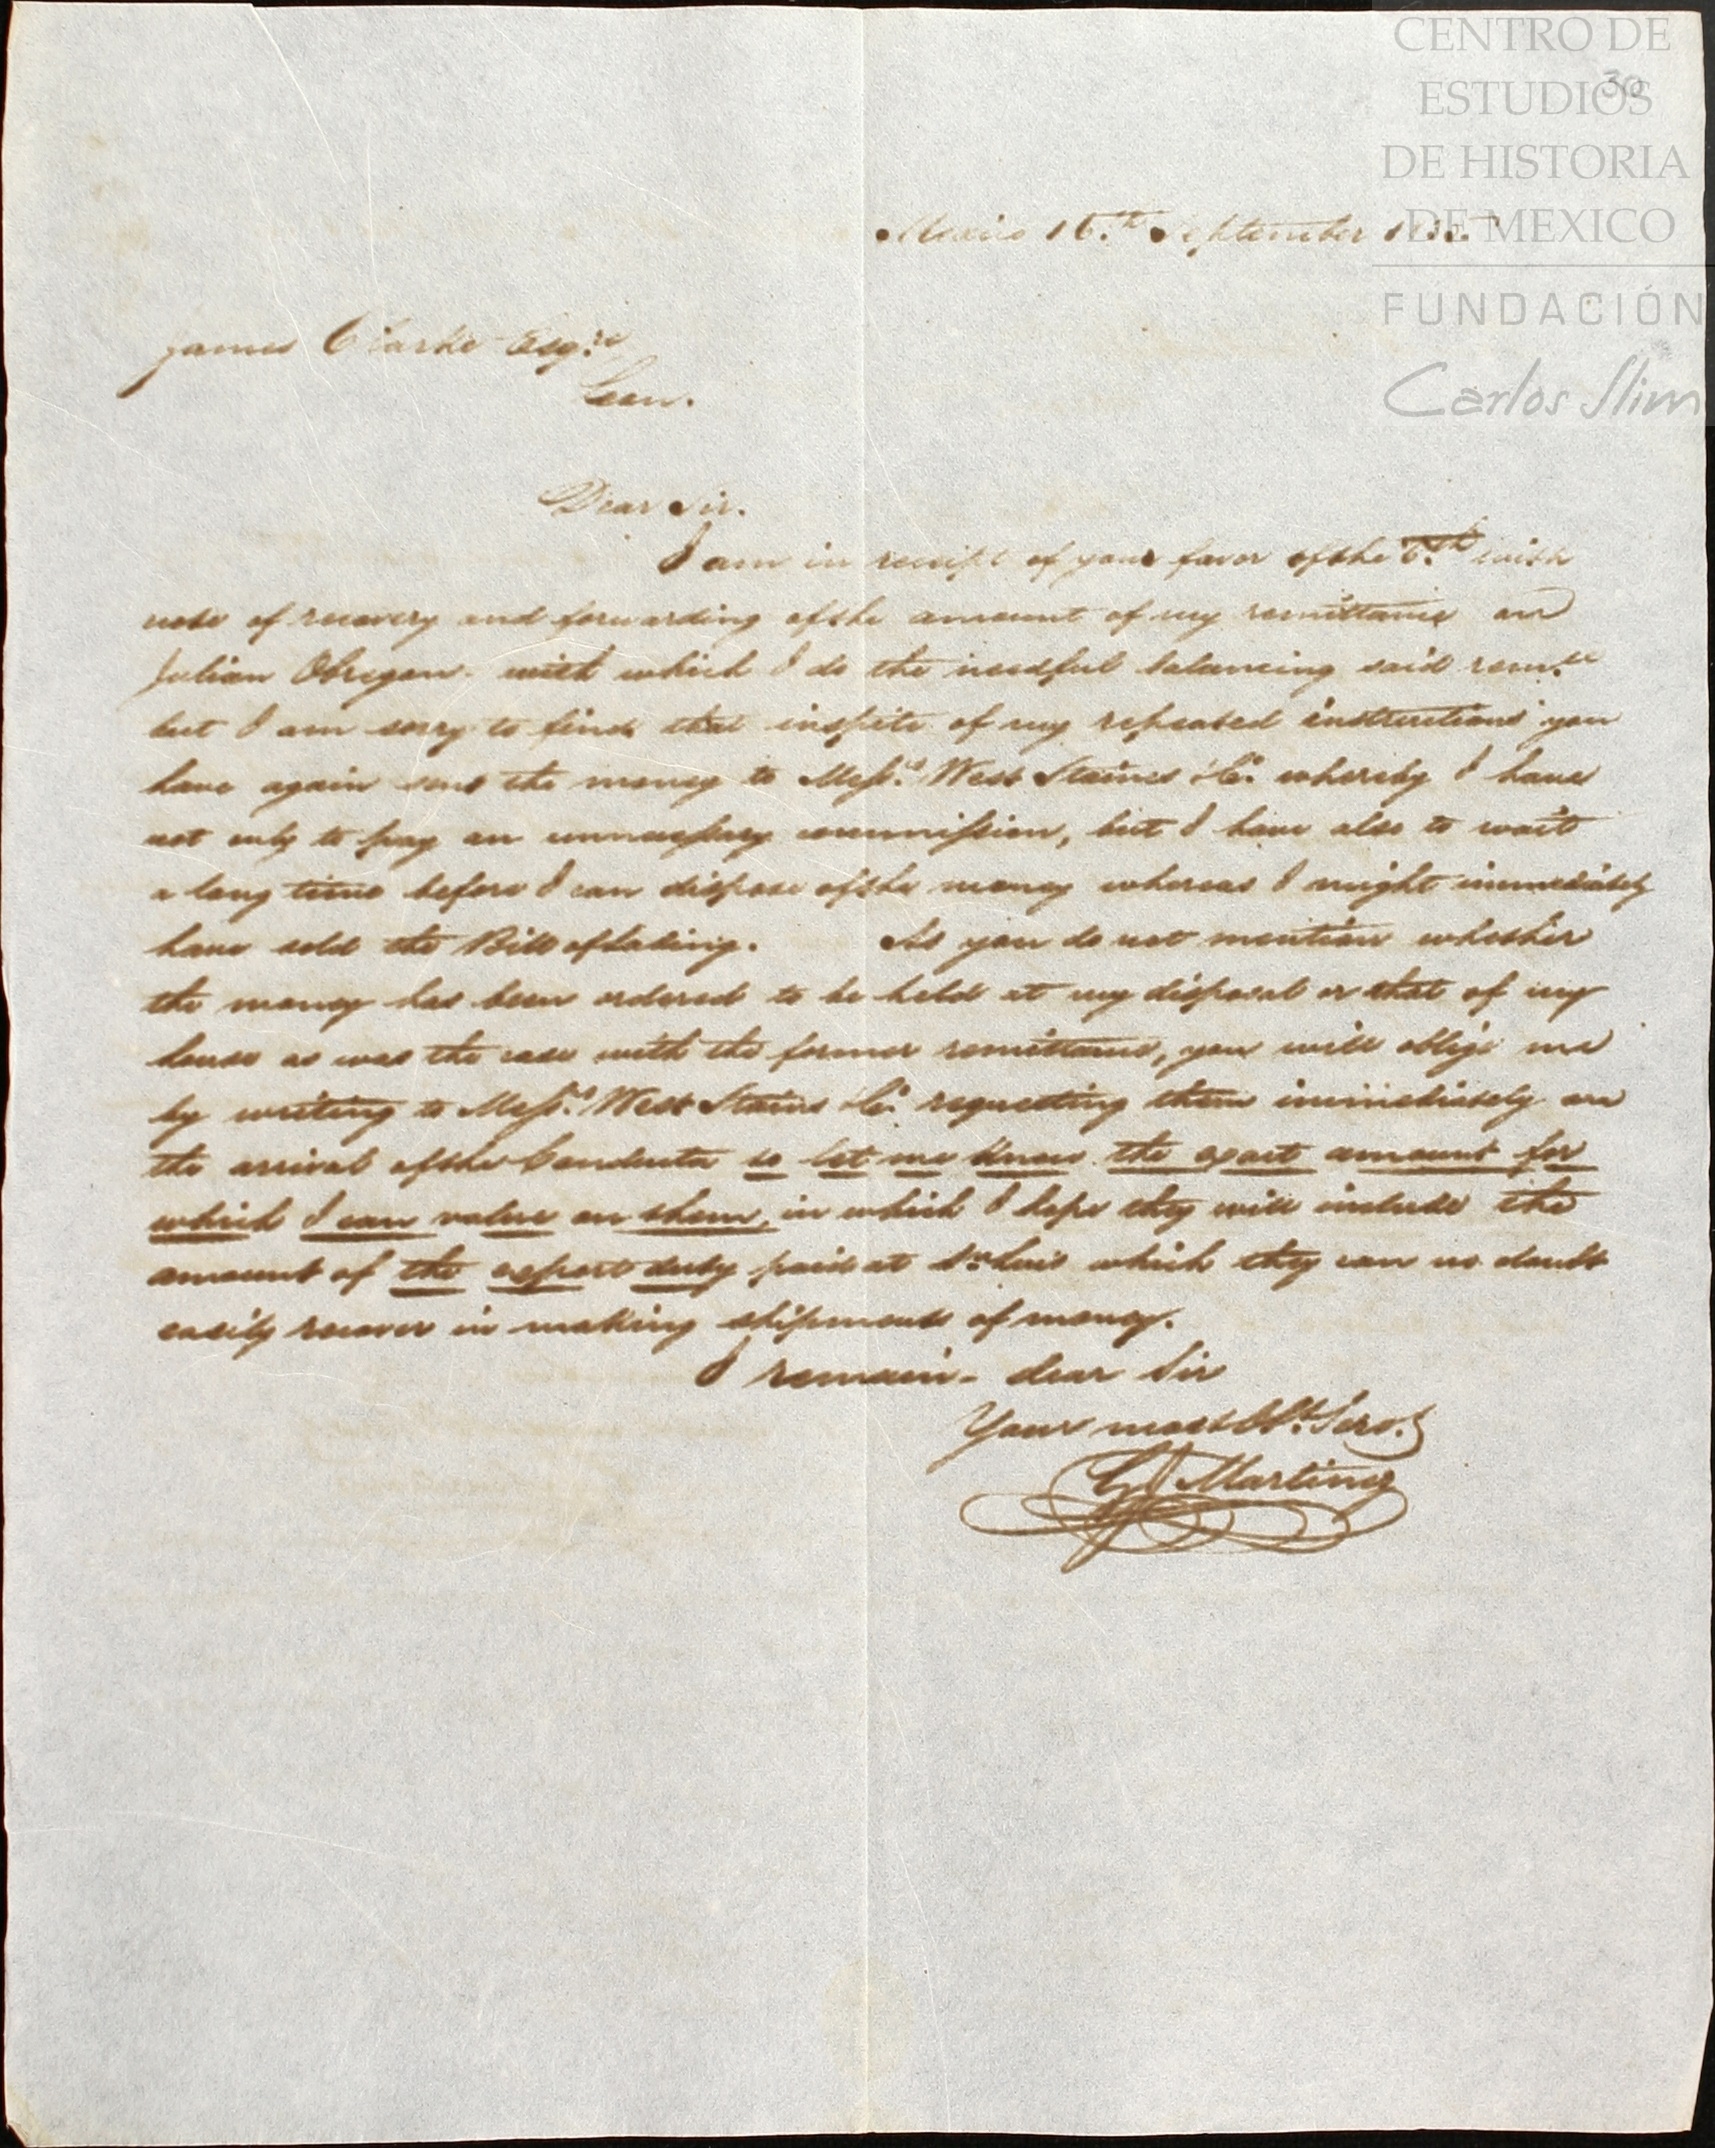 CENTRO DE
ESTUDIOS
DE HISTORIA
DE MEXICO
FUNDACIÓN
Carlos Slim
30
Mexico 16.th September
James Clarke Esq.re
Leon.
Dear Sir.
I am in receipt of your favor of the 6.th with
note of recovery and forwarding of the amount of my remittance on
Julian Obregon. with which I do the needful balancing said rem.ce
but I am sorry to find that inspite of my repeated instructions you
have again sent the money to Mess.rs West Staines & Co. whereby I have
not only to pay an unnecessary commission, but I have also to wait
a long time before I can dispose of the money whereas I might immediately
have sold the Bill of lading. As you do not mention whether
the money has been ordered to be held at my disposal or that of my
house as was the case with the former remittance, you will oblige me
by writing to Mess.rs West Stains & Co. requesting them immediately on
the arrival of the Conducta to let me know the exact amount for
which I can value on them, in which I hope they will include the
amount of the export duty paid at Sn. Luis which they can no doubt
easily recover in making shipments of money.
I remain - dear Sir
Your most Obt. Serv.t
Martinez